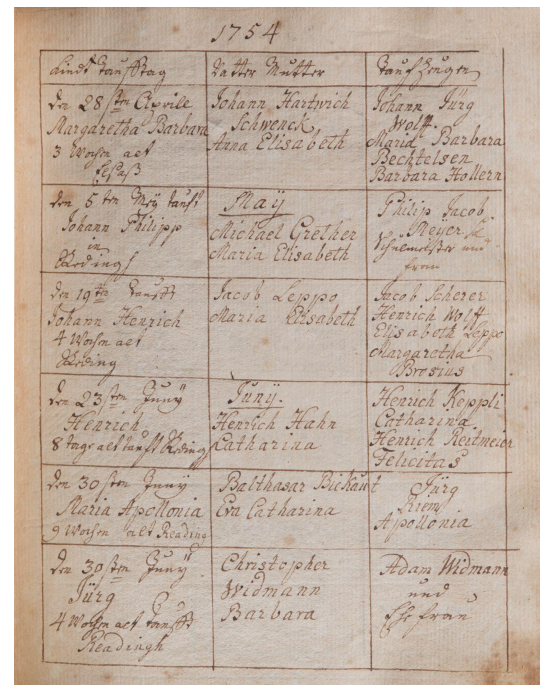 1754
Kindt Taufftag
Vatter Mutter
Taufzeugen
Den 28sten Aprile
Margaretha Barbara
3 Wochen alt
Johann Hartwich
Schwenck
Anna Elisabeth
Johann Jürg
Wolff
Maria Barbara
Bechtelsen
Barbara Hollern
Den 5ten Meÿ taufft
Johann Philipp
in
Redingh
Maÿ
Michael Grether
Maria Elisabeth
Philip Jacob
Meyer
Schulmeister und
frau
Den 19te taufft
Johann Henrich
4 Wochen alt
Reding
Jacob Leppo
Maria Elisabeth
Jacob Scherer
Henrich Wolff
Elisabeth Leppo
Margaretha
Brosius
Den 23sten Junÿ
Henrich
8 tage alt taufft Reding
Junÿ.
Henrich Hahn
Catharina
Henrich Keppli
Catharina
Henrich Reitmeier
Felicitas
Den 30sten Junÿ
Maria Apollonia
9 Wochen alt Reading
Balthasar Bickaut
Eva Catharina
Jürg
Riem
Apollonia
Den 30sten Junÿ
Jürg
4 Wochen alt taufft
Readingh
Christopher
Widmann
Barbara
Adam Widmann
und
Ehefrau